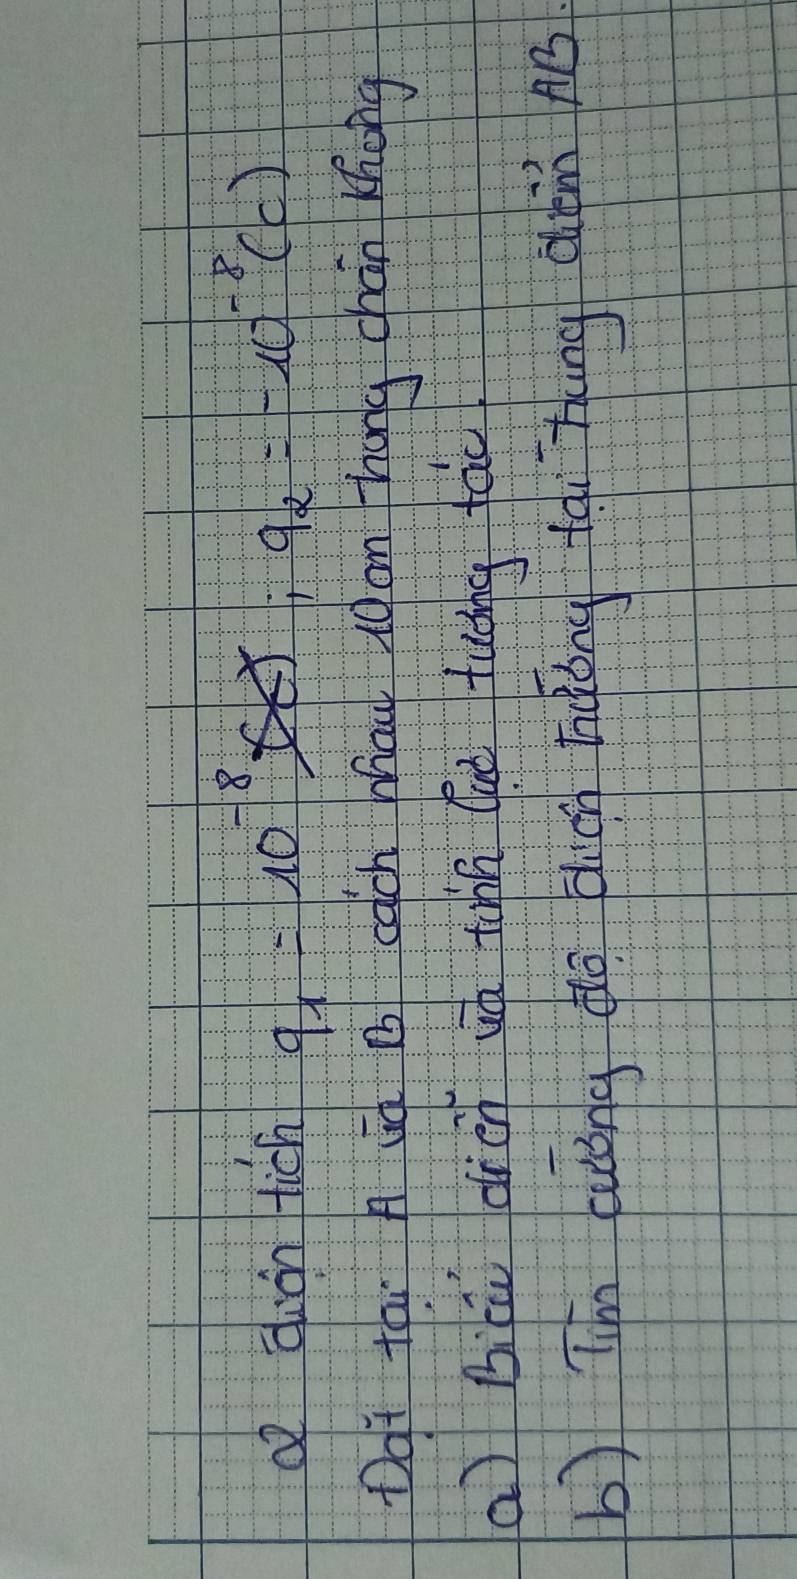 2 điện tích q₁ = 10⁻⁸ ; q₂ = -10⁻⁸ (C)
Đặt tại A và B cách nhau 10cm trong chân không
a) Biểu diễn và tính lực tương tác.
b) Tìm cường độ điện trường tại trung điểm AB.